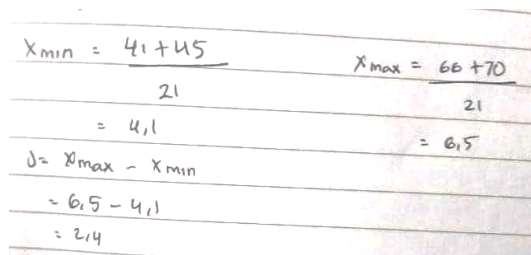 Xmin = 41 + 45
21
= 4,1
Xmax = 66 + 70
21
= 6,5
J = Xmax - Xmin
= 6,5 - 4,1
= 2,4